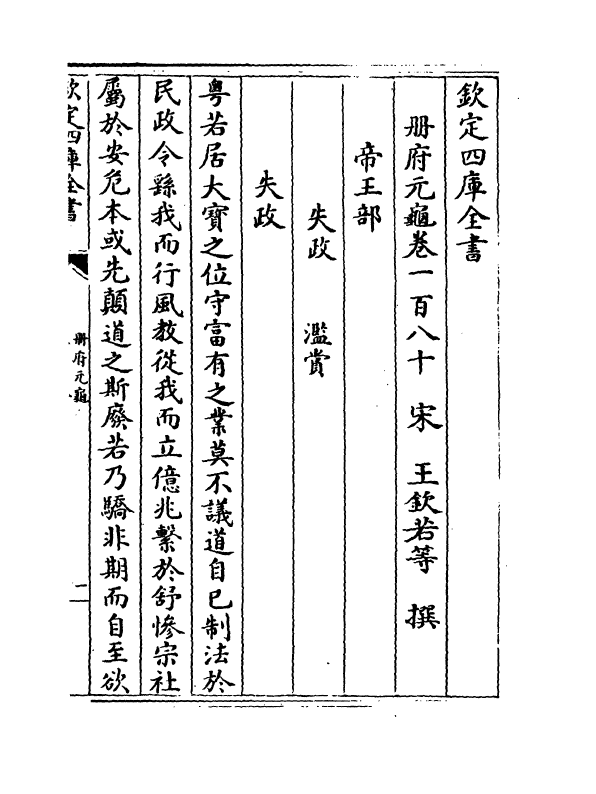 欽定四庫全書
册府元龜卷一百八十　宋　王欽若等　撰
帝王部
失政　濫賞
失政
粤若居大寳之位守富有之業莫不議道自已制法於
民政令繇我而行風教從我而立億兆繫於舒慘宗社
屬於安危本或先顛道之斯廢若乃驕非期而自至欲
欽定四庫全書
册府元龜
二